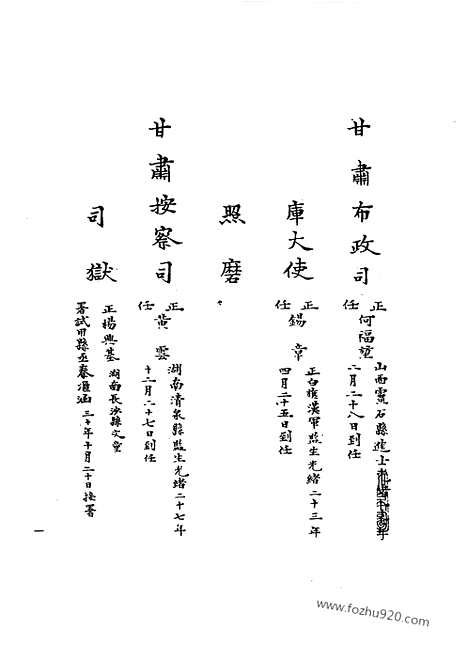 甘肅布政司
正任何福堃
山西靈石縣進士
二月二十八日到任
庫大使
正任錫章
正白旗漢軍監生光緒二十三年
四月二十五日到任
照磨
甘肅按察司
正任黃雲
湖南清泉縣監生光緒二十七年
十二月二十七日到任
司獄
正楊興基湖南長沙縣文童
署試用縣丞秦涵三十年十月二十日接署
一
www.fozhu920.com